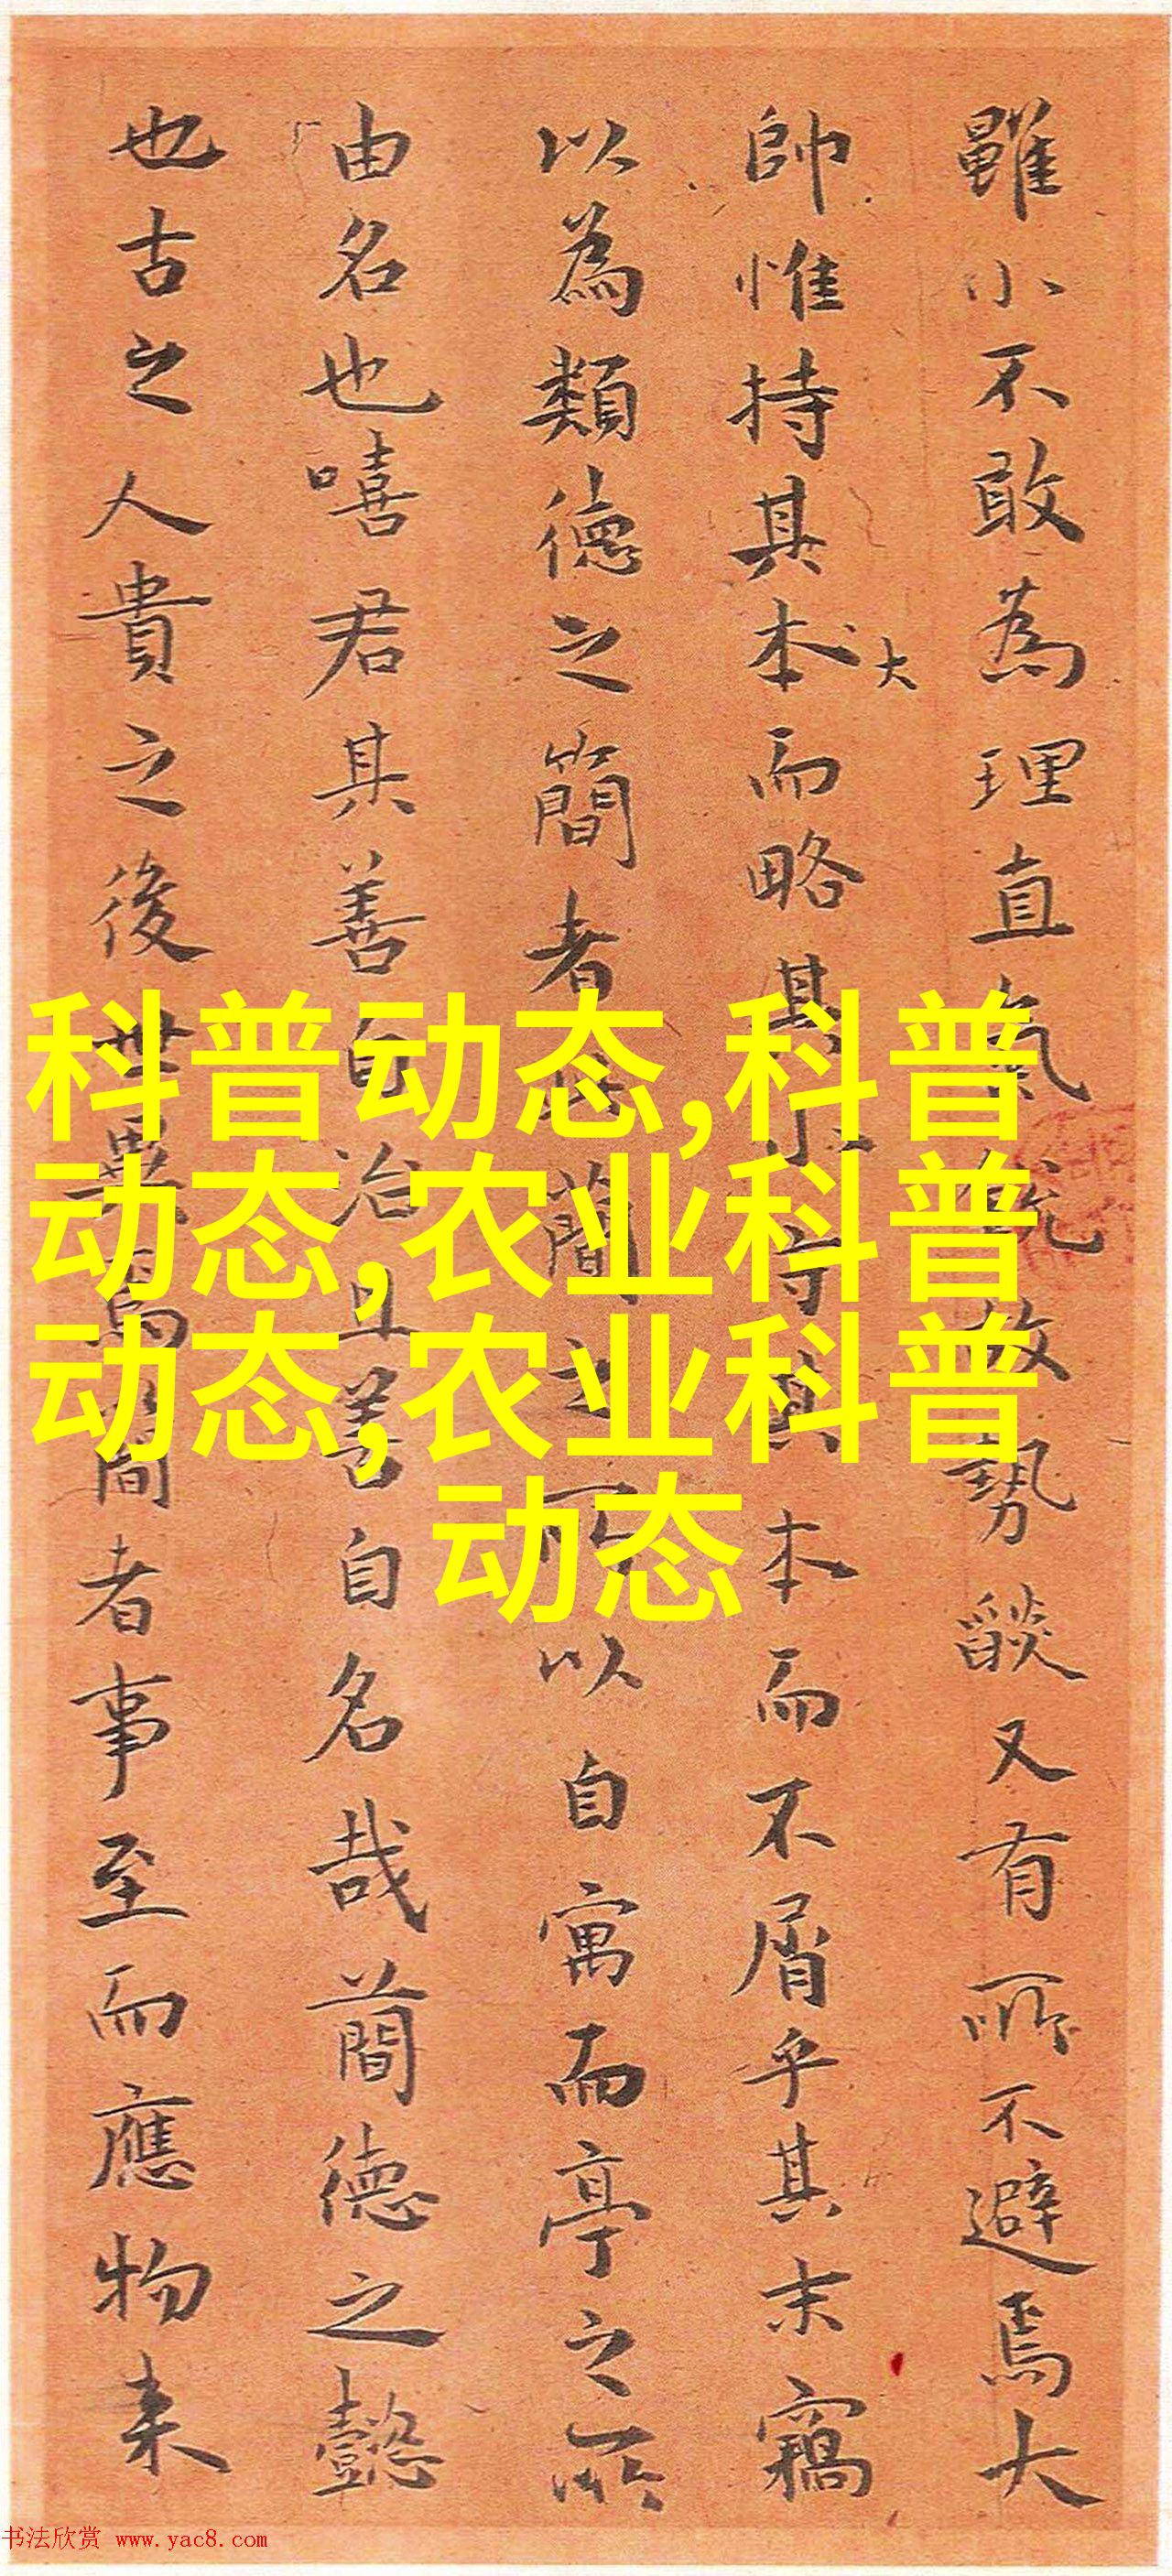 雖小不敢為理直氣銳故勢燄又有所不避焉大
帥惟持其本大而略其小守其本而不屑乎其末竊
以為類德之簡者此簡之所以自寓而亭之所
由名也嘻君其善自治且善自名哉簡德之懿
也古之人貴之後世異焉簡者事至而應物来
科普动态,科普
动态,农业科普
动态,农业科普
动态
书法欣赏 www.yac8.com